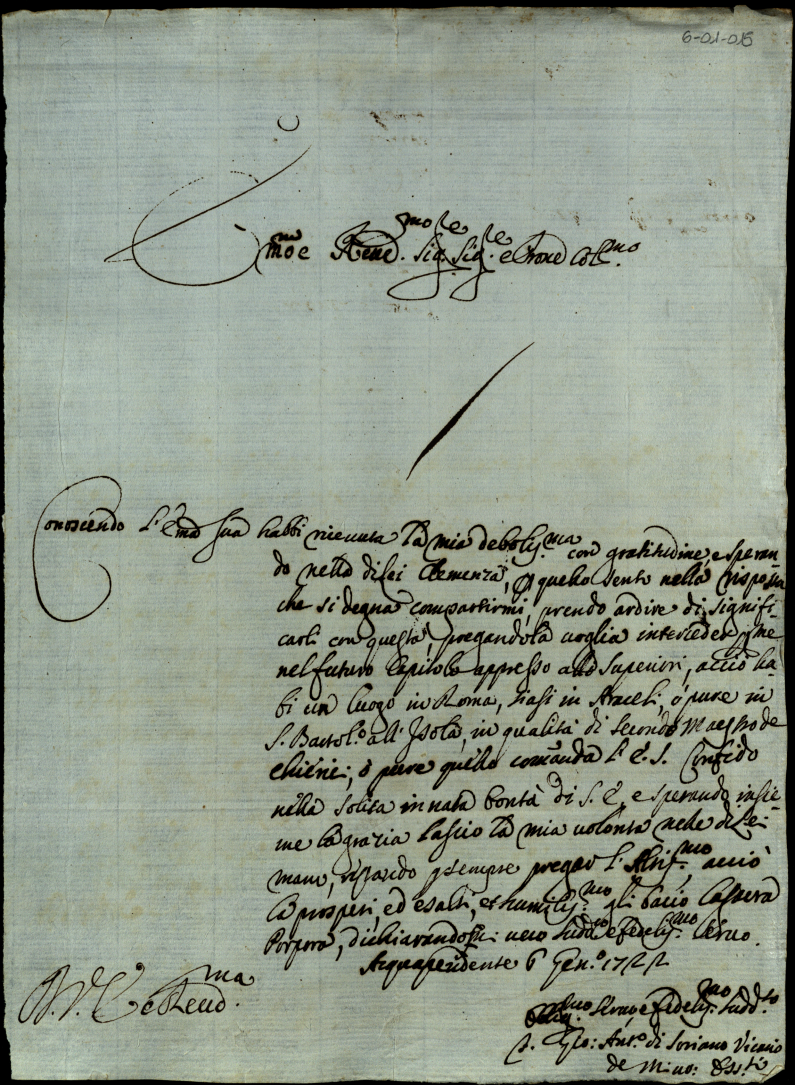 6-01-015
Em̃o e Rend.mo Sig.re Sig.re e Prone Col.mo
Conoscendo L'Em̃a Sua habbi riceuuta la mia deboliss.ma con gratitudine, e speran-
do nella di lei Clemenza, p quello sento nella risposta
che si degna compartirmi, prendo ardire di signifi-
carli con questa, pregandola uoglia interceder p me
nel futuro Capitolo appresso alli Superiori, acciò ha-
bi un luogo in Roma, siasi in Araceli, ò pure in
S. Bartol.o all'Isola, in qualità di Secondo Maestro de
Chierici, ò pure quello comanda L'E. S. Confido
nella solita innata bontà di S. E. e sperando insie-
me la grazia lascio la mia uolontà nelle di Lei
mani, restando p sempre pregar l'Altiss.mo acciò
la prosperi, ed esalti, et humiliss.mo gli bacio la Sacra
Porpora, dichiarandomi uero Sudd.o e fedeliss.mo Seruo.
Acquapendente 6 Gen.o 1722
D. V. E. e Reud.ma
Obblig.mo Seruo e fedeliss.mo Sudd.to
F. Gio: Ant.o di Soriano Vicario
de Mino: Oss.ti